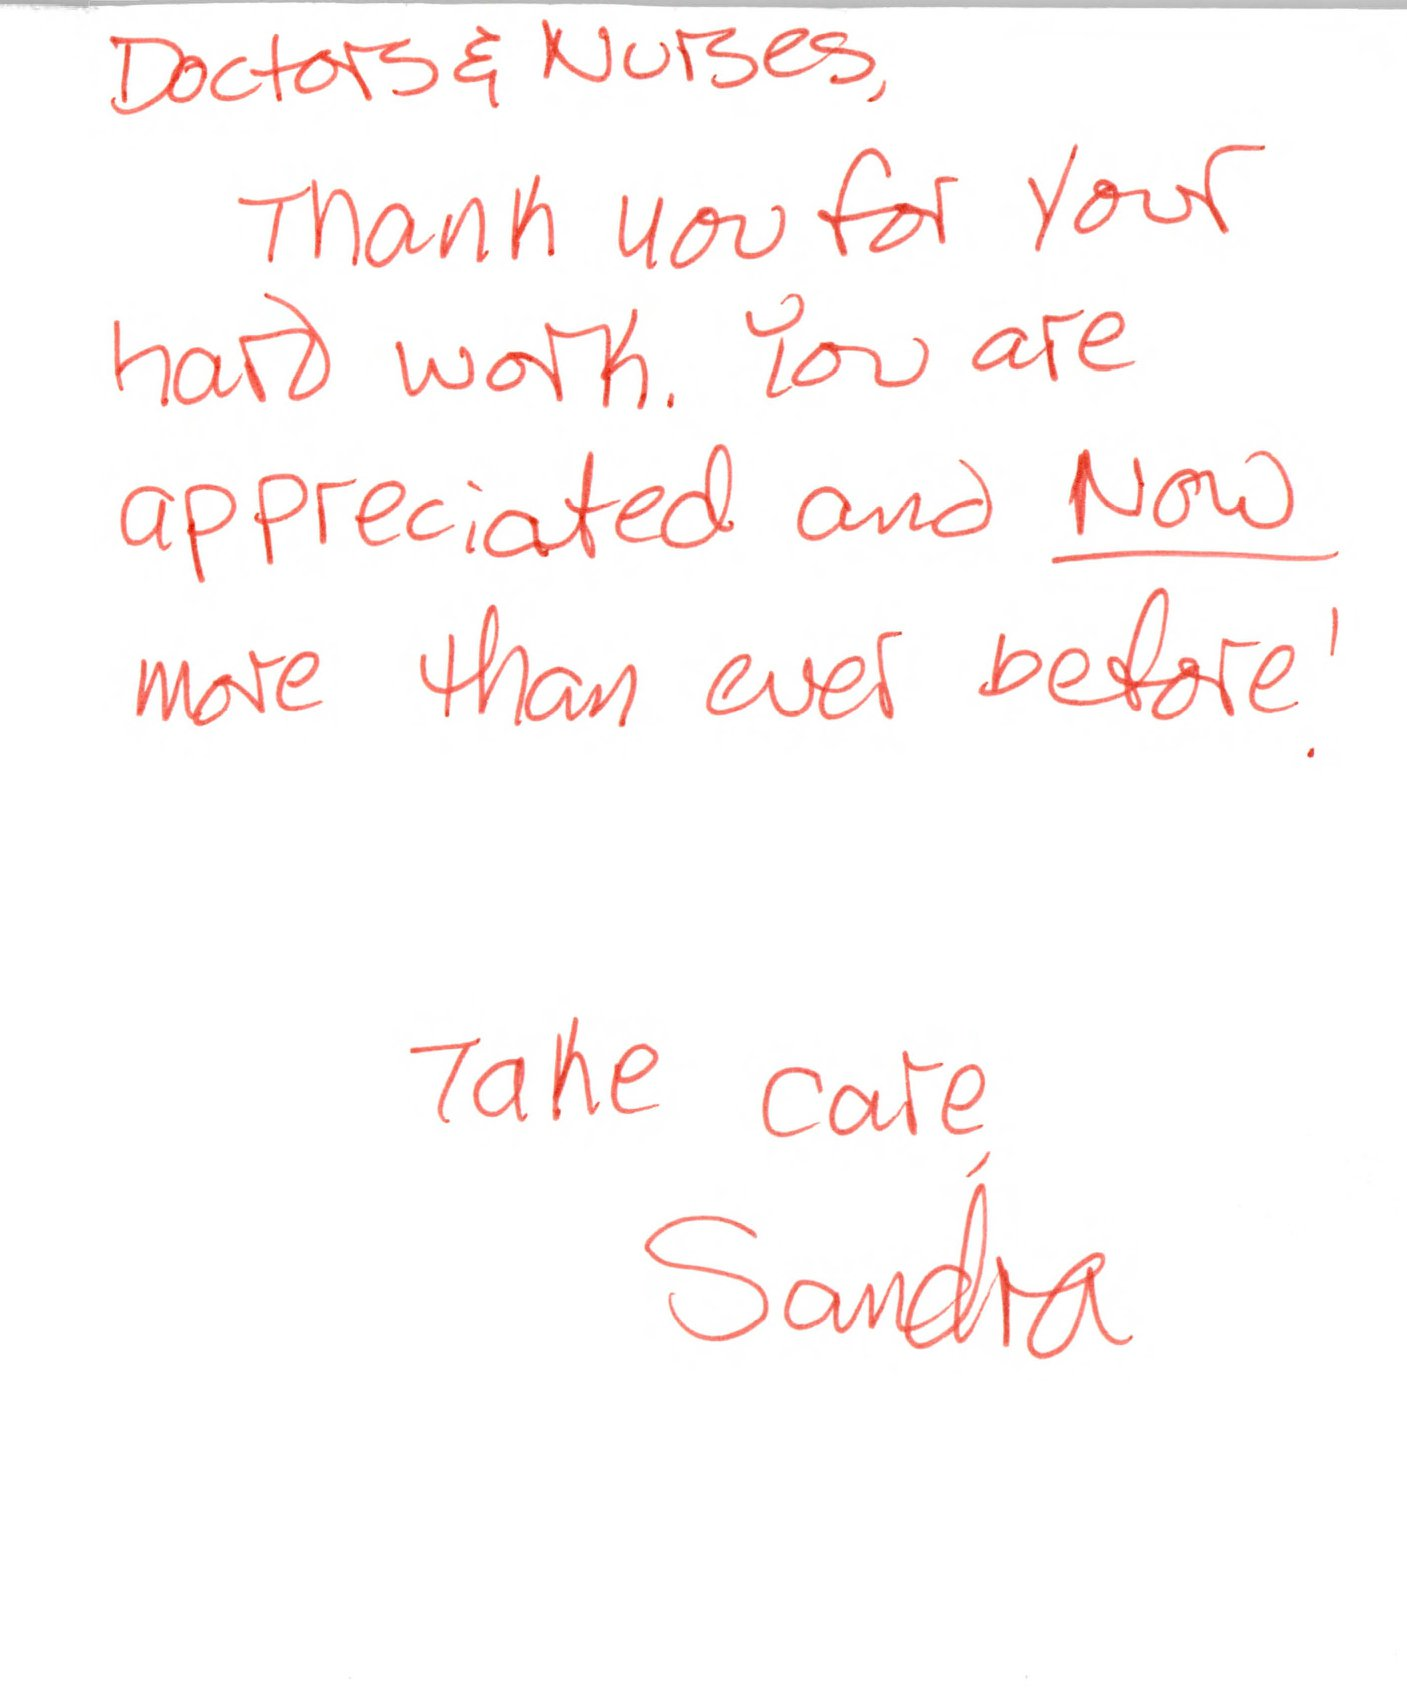 Doctors & Nurses,
Thank you for your
hard work. You are
appreciated and Now
more than ever before!
Take care,
Sandra